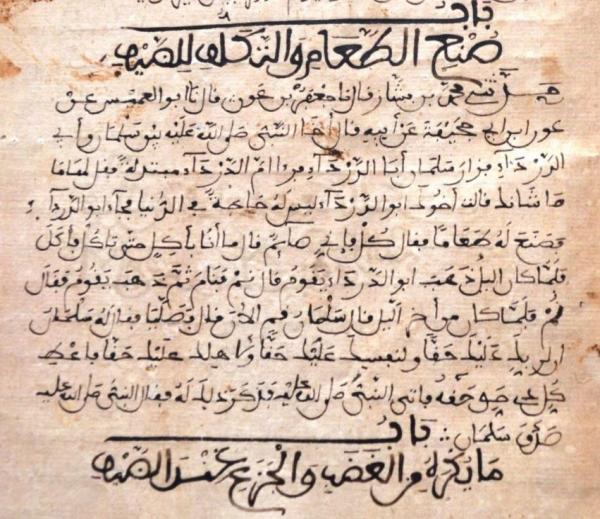 باب
صنع الطعام والتكلف للضيف
حدثني محمد بن بشار قال نا جعفر بن عون قال نا ابو العميس عن
عون ابن ابي جحيفة عن أبيه قال آخا النبي صلى الله عليه بين سلمان وأبي
الدرداء فزار سلمان أبا الدرداء فرءا ام الدرداء متبذلة فقل لها ما
ما شانك قالت أخوك ابو الدرداء ليس له حاجة في الدنيا فجاء ابو الدرداء
فصنع له طعاما فقال كل فإني صائم قال ما أنا بآكل حتى تاكل فأكل
فلما كان اليل ذهب ابو الدرداء يقوم قال نم فنام ثم ذهب يقوم فقال
نم فلما كان من آخر اليل قال سلمان قم الآن قال فصليا فقال له سلمان
ان لربك عليك حقا ولنفسك عليك حقا ولاهلك عليك حقا فاعط
كل ذي حق حقه فاتى النبي صلى الله عليه فذكر ذلك له فقال النبي صلى الله عليه
صدق سلمان ۞ باب
ما يكره من الغضب والجزع عند الضيف